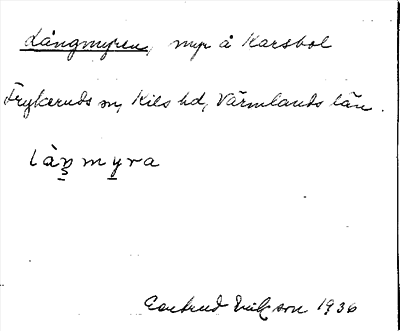 Långmyren, myr å Karsbol
Frykeruds sn, Kils hd, Värmlands län.
làŋmyra
Gertrud Erikson 1936